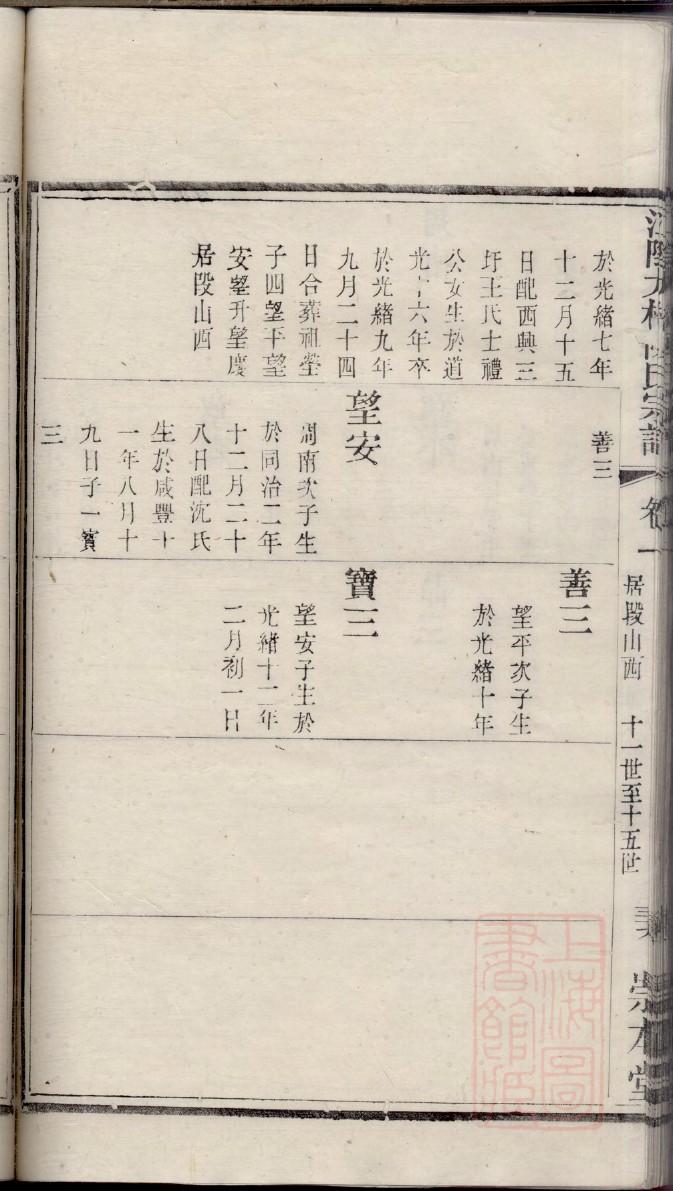 於光緒七年
十二月十五
日配西興三
圩王氏士禮
公女生於道
光十六年卒
於光緒九年
九月二十四
日合葬祖塋
子四望平望
安望升望慶
居段山西
善三
望安
澗南次子生
於同治二年
十二月二十
八日配沈氏
生於咸豐十
一年八月十
九日子一寶
三
善三
望平次子生
於光緒十年
寶三
望安子生於
光緒十二年
二月初一日
氏宗譜
卷一
居段山西
十一世至十五世
崇本堂
上海圖
書館藏